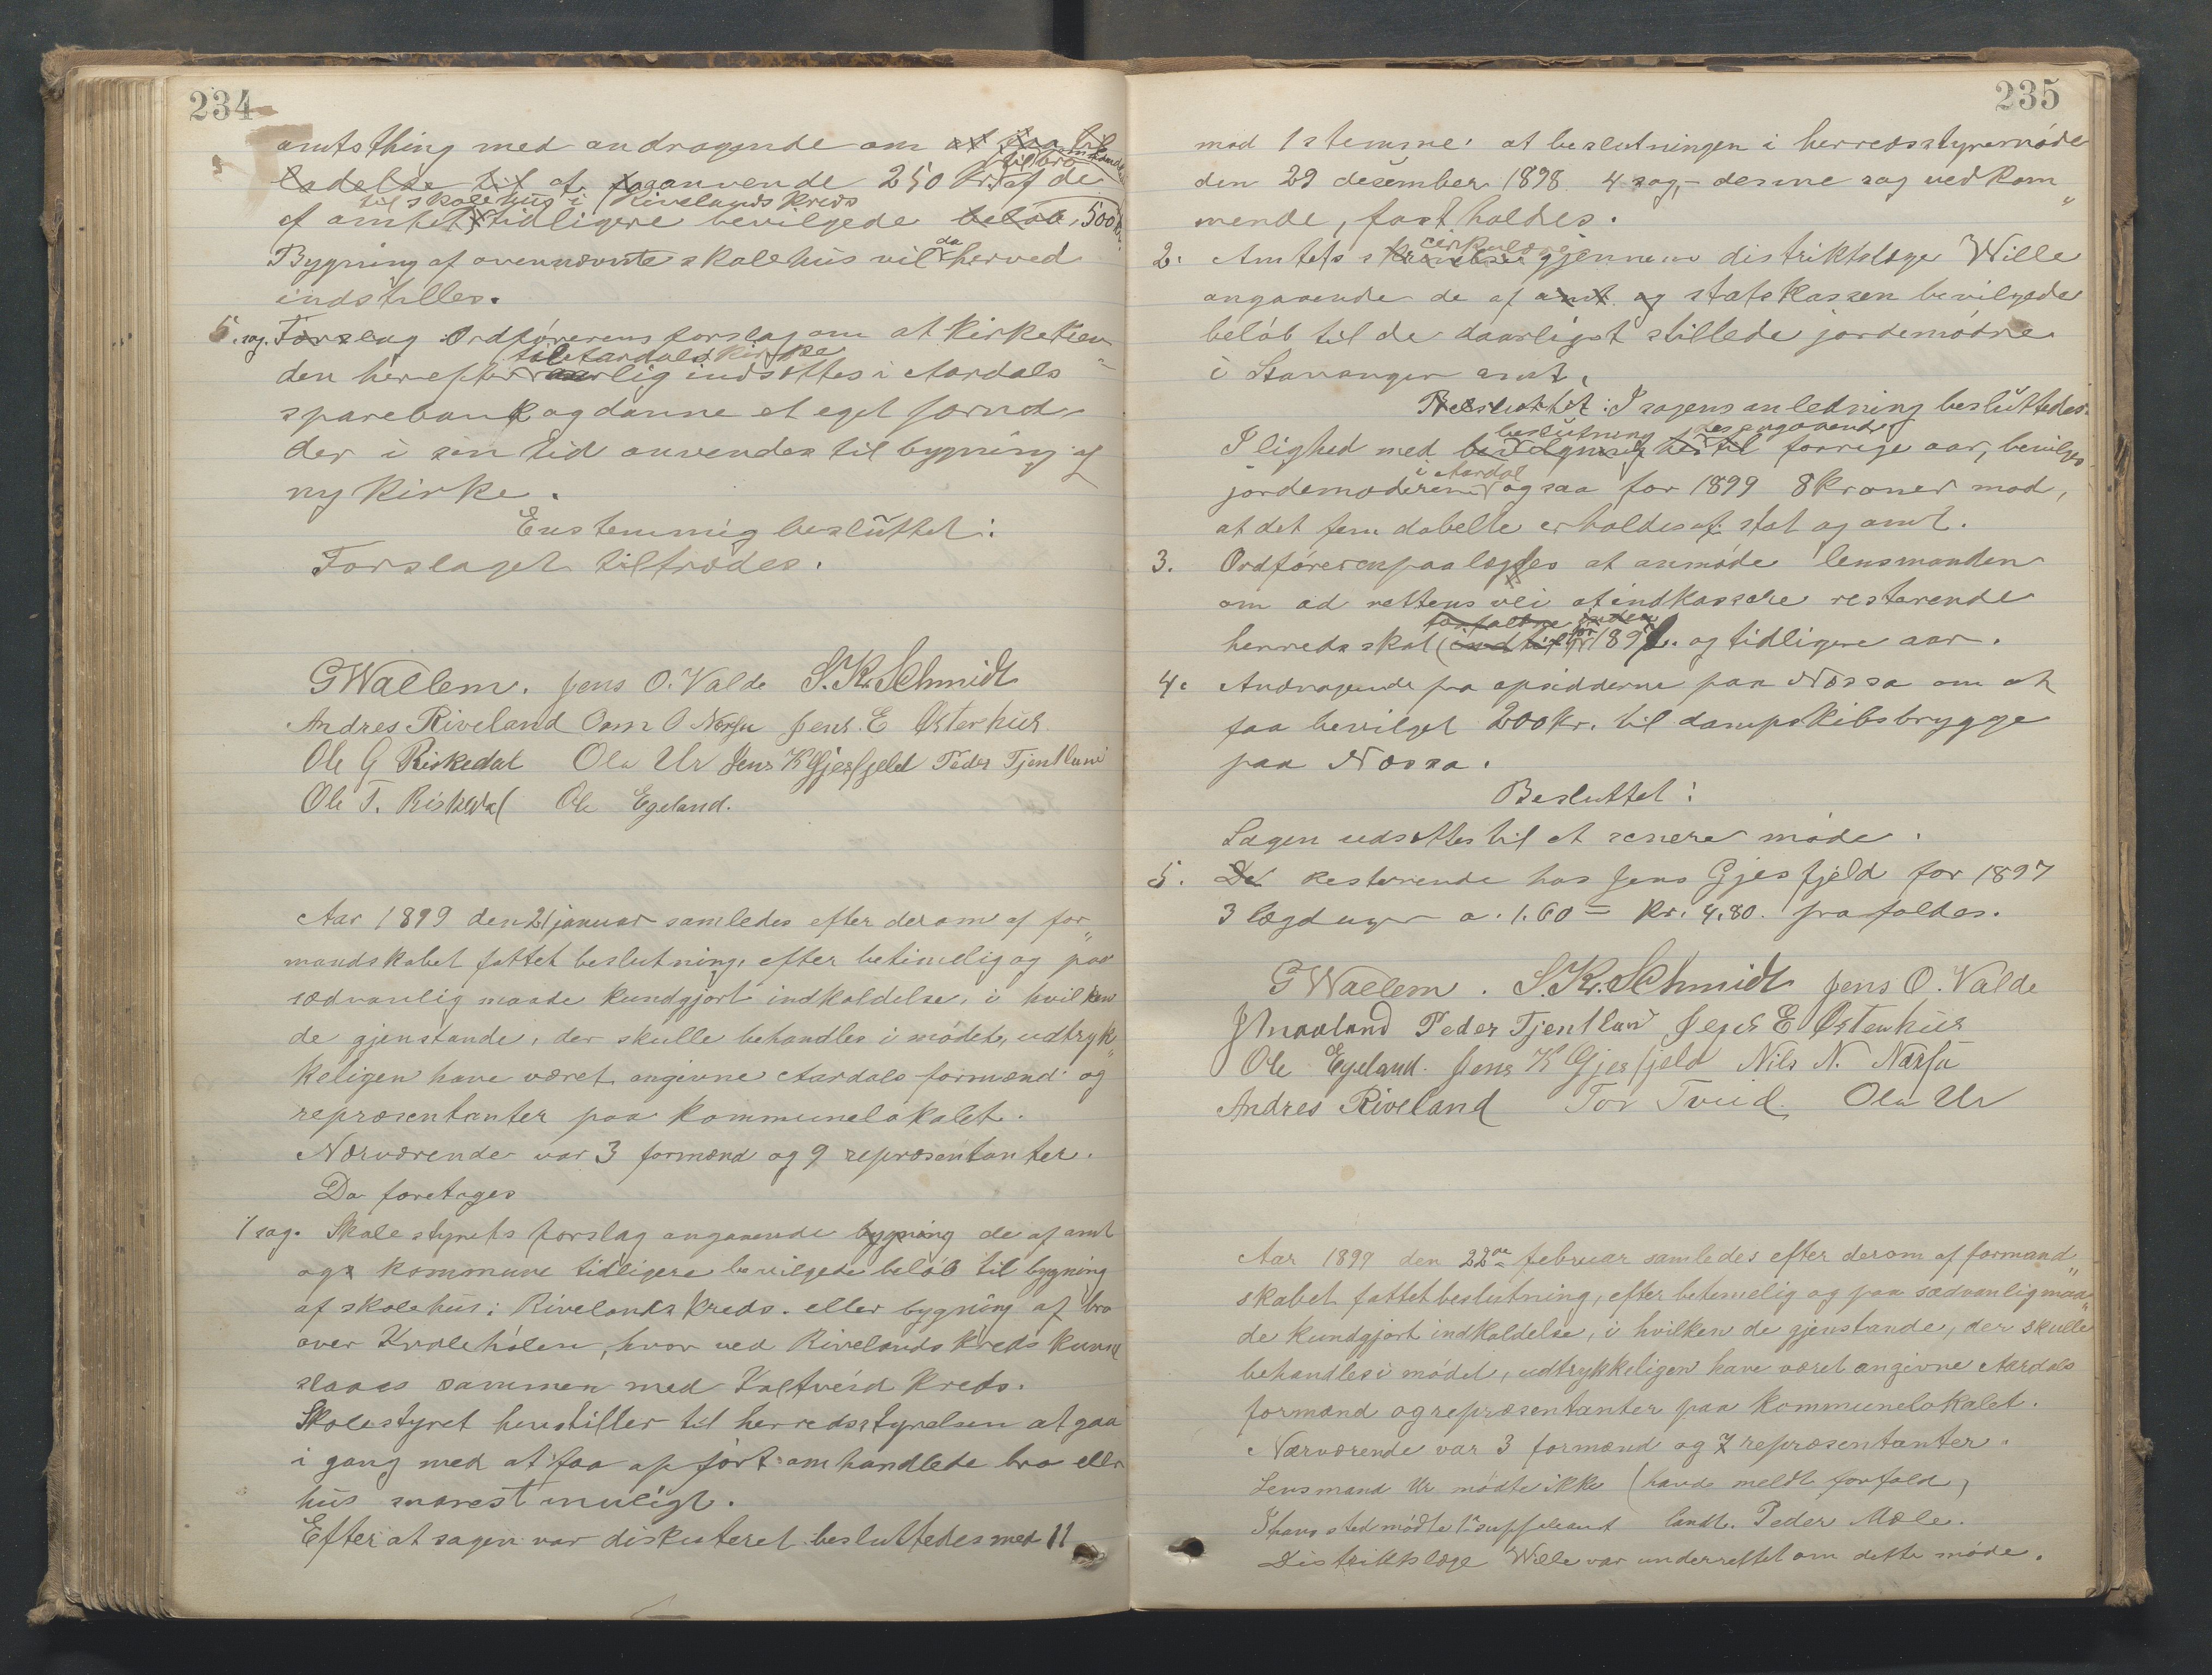 234
amtsthing med andragende om at faa til
til bro omhandlede
ladelse til at faa anvende 250 kr. af de
til skolehus i Rivelands kreds
af amtet tidligere bevilgede beløb 500 kr.
Bygning af ovennævnte skolehus vil da herved
indstilles.
5. sag. Forslag Ordførerens forslag om at kirketien
til Aardals kirke
den herefter aarlig indsættes i Aardals
sparebank og danne et eget fond,
der i sin tid anvendes til bygning af
ny kirke.
Enstemmig besluttet:
Forslaget tiltrædes.
G Wallem. Jens O. Valde S. Kr. Schmidt
Andres Riveland Om O Nessa Jens. E Østerhus
Ole G Riskedal Ola Ur Jens K Gjesfjeld Peder Tjentland
Ole T. Riskedal Ole Egeland.
Aar 1899 den 21 januar samledes efter derom af for„
mandskabet fattet beslutning, efter betimelig og paa
sædvanlig maade kundgjort indkaldelse, i hvilken
de gjenstande, der skulle behandles i mødet, udtryk„
keligen have været angivne Aardals formænd og
repræsentanter paa kommunelokalet.
Nærværende var 3 formænd og 9 repræsentanter.
Da foretages
1 sag. Skolestyrets forslag angaaende bygning de af amt
og kommune tidligere bevilgede beløb til bygning
af skolehus i Rivelands kreds. eller bygning af bro
over Kvalehølen, hvorved Rivelands kreds kunde
slaaes sammen med Valtveid kreds.
Skolestyret henstiller til herredsstyrelsen at gaa
i gang med at faa opført omhandlede bro eller
hus snarest muligt.
Efter at sagen var diskuteret besluttedes med 11
235
mod 1 stemme: at beslutningen i herredsstyremøde
den 29 desember 1898 4 sag,- denne sag vedkom„
mende, fastholdes.
2. Amtets skrivelse cirkulære gjennem distriktslæge Wille
angaaende de af amt og statskassen bevilgede
beløb til de daarligst stillede jordemødre
i Stavanger amt.
Besluttet: I sagens anledning besluttedes:
beslutning desangaaende
I lighed med bevilgning hertil forrige aar, bevilges
i Aardal
jordemoderen ogsaa for 1899 8 kroner mod,
at det fem dobelte erholdes af stat og amt.
3. Ordføreren paalægges at anmode lensmanden
om ad rettens vei at indkassere resterende
forfaldne inden
herredsskat (indtil for 1897. og tidligere aar.
4. Andragende fra opsidderne paa Nessa om at
faa bevilget 200 kr. til dampskibsbrygge
paa Nessa.
Besluttet:
Sagen udsættes til et senere møde.
5. De resterende hos Jens Gjesfjeld for 1897
3 lægduger a. 1.60 = kr. 4.80. frafaldes.
G Wallem. S. Kr. Schmidt Jens O. Valde
Peder Tjentland Jens E Østerhus
Ole Egeland. Jens K Gjesfjeld Nils N. Nessa
Andres Riveland Tor Tveid Ola Ur
Aar 1899 den 22de februar samledes efter derom af formand„
skabet fattet beslutning, efter betimelig og paa sædvanlig maa„
de kundgjort indkaldelse, i hvilken de gjenstande, der skulle
behandles i mødet, udtrykkeligen have været angivne Aardals
formænd og repræsentanter paa kommunelokalet.
Nærværende var 3 formænd og 7 repræsentanter.
Lensmand Ur mødte ikke (havde meldt forfald,
I hans sted mødte 1ste suppleant landh. Peder Mæle.
Distriktslæge Wille var underrettet om dette møde.